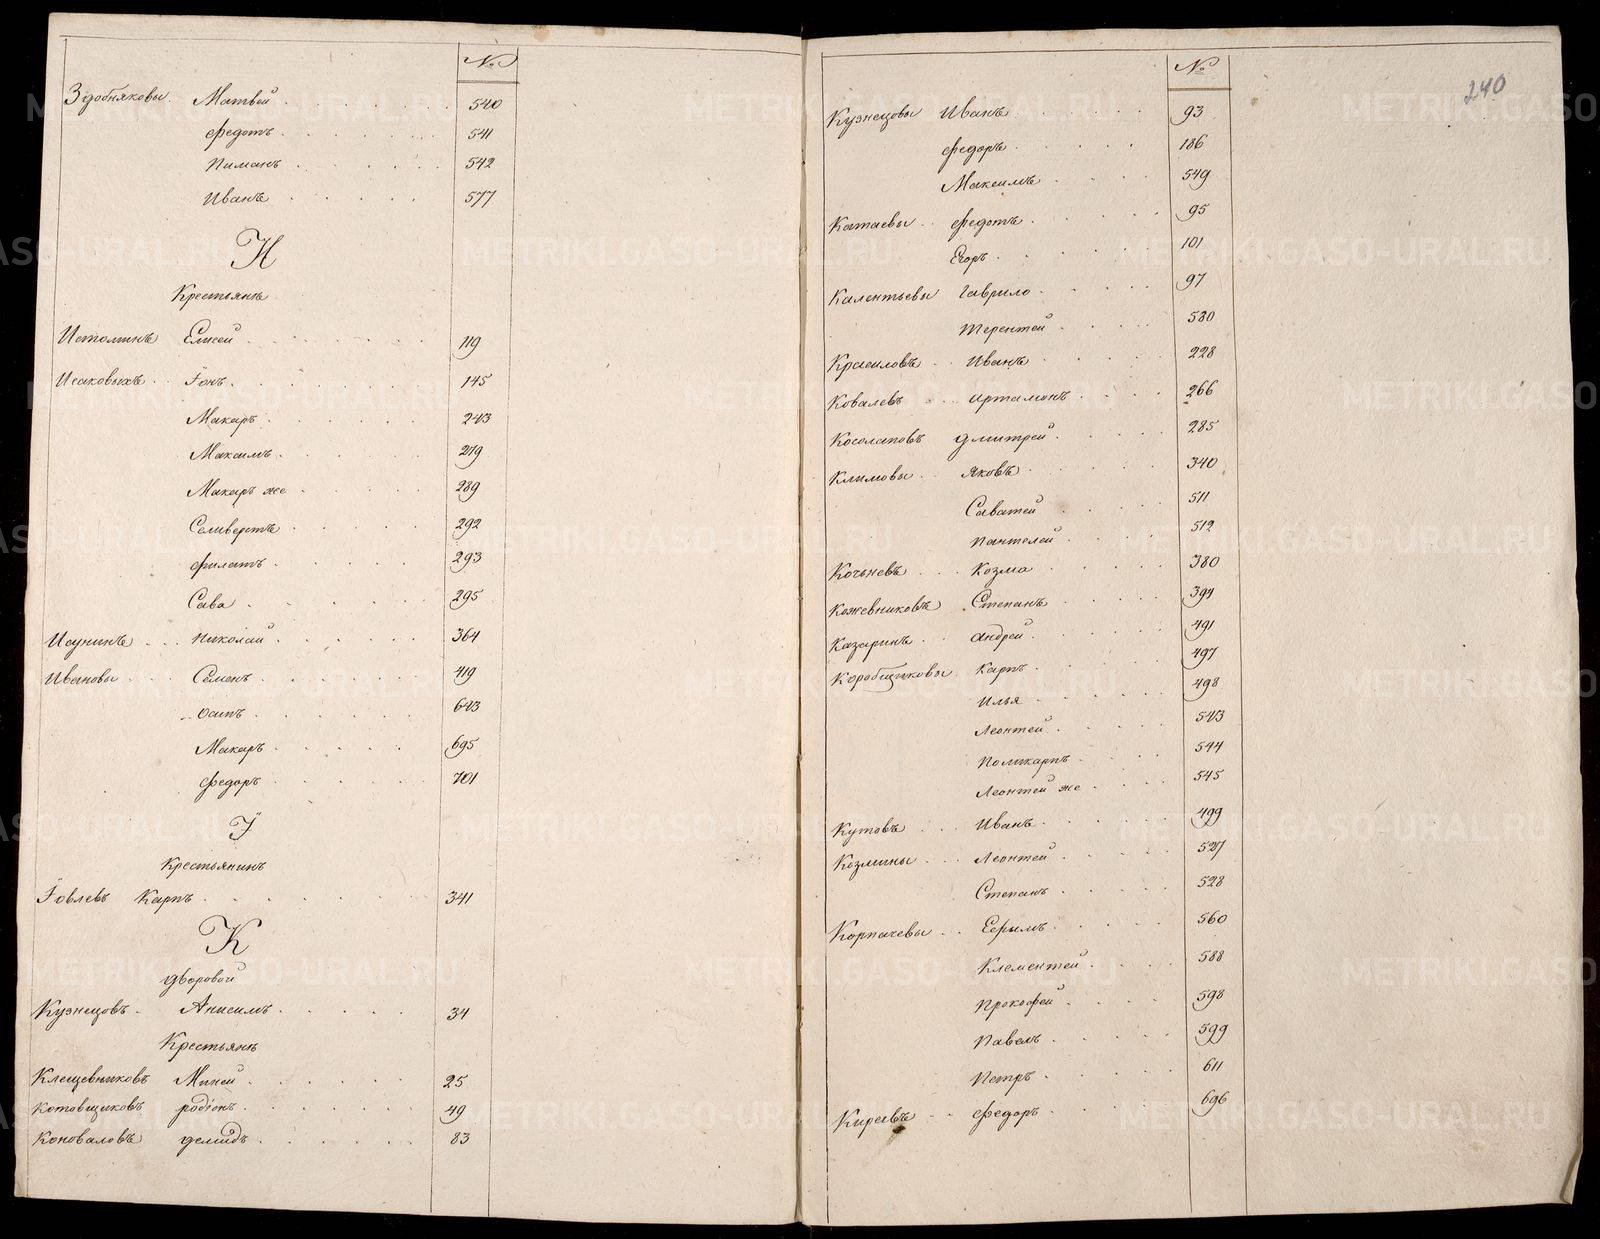 №
Здобняковы. Матвей 540
Федотъ 541
Пиманъ 542
Иванъ 577
И
Крестьянѣ
Истоминъ Елисей 119
Исаковыхъ Іонъ 145
Макаръ 243
Максимъ 279
Макаръ же 289
Селиверстъ 292
Филатъ 293
Сава 295
Исунинъ Николай 364
Ивановы Семенъ 419
Осипъ 643
Макаръ 695
Федоръ 701
І
Крестьянинъ
Іовлевъ Карпъ 341
К
Дворовой
Кузнецовъ Анисимъ 34
Крестьянѣ
Клещевниковъ Миней 25
Котовщиковъ Родіонъ 49
Коноваловъ Демидъ 83
№
240
Кузнецовы Иванъ 93
Федоръ 186
Максимъ 549
Катаевы Федотъ 95
Егоръ 101
Калентьевы Гаврило 97
Терентей 580
Красиловъ Иванъ 228
Ковалевъ Артамонъ 266
Косолаповъ Дмитрей 285
Климовы Яковъ 340
Саватей 511
Пантелей 512
Кочьневъ Козма 380
Кожевниковъ Степанъ 394
Казаринъ Андрей 491
Коробщиковы Карпъ 497
Илья 498
Леонтей 543
Поликарпъ 544
Леонтей же 545
Кутовъ Иванъ 499
Козмины Леонтей 527
Степанъ 528
Корпачевы Ефрымъ 560
Клементей 588
Прокофей 598
Павелъ 599
Петръ 611
Киреевъ Федоръ 696